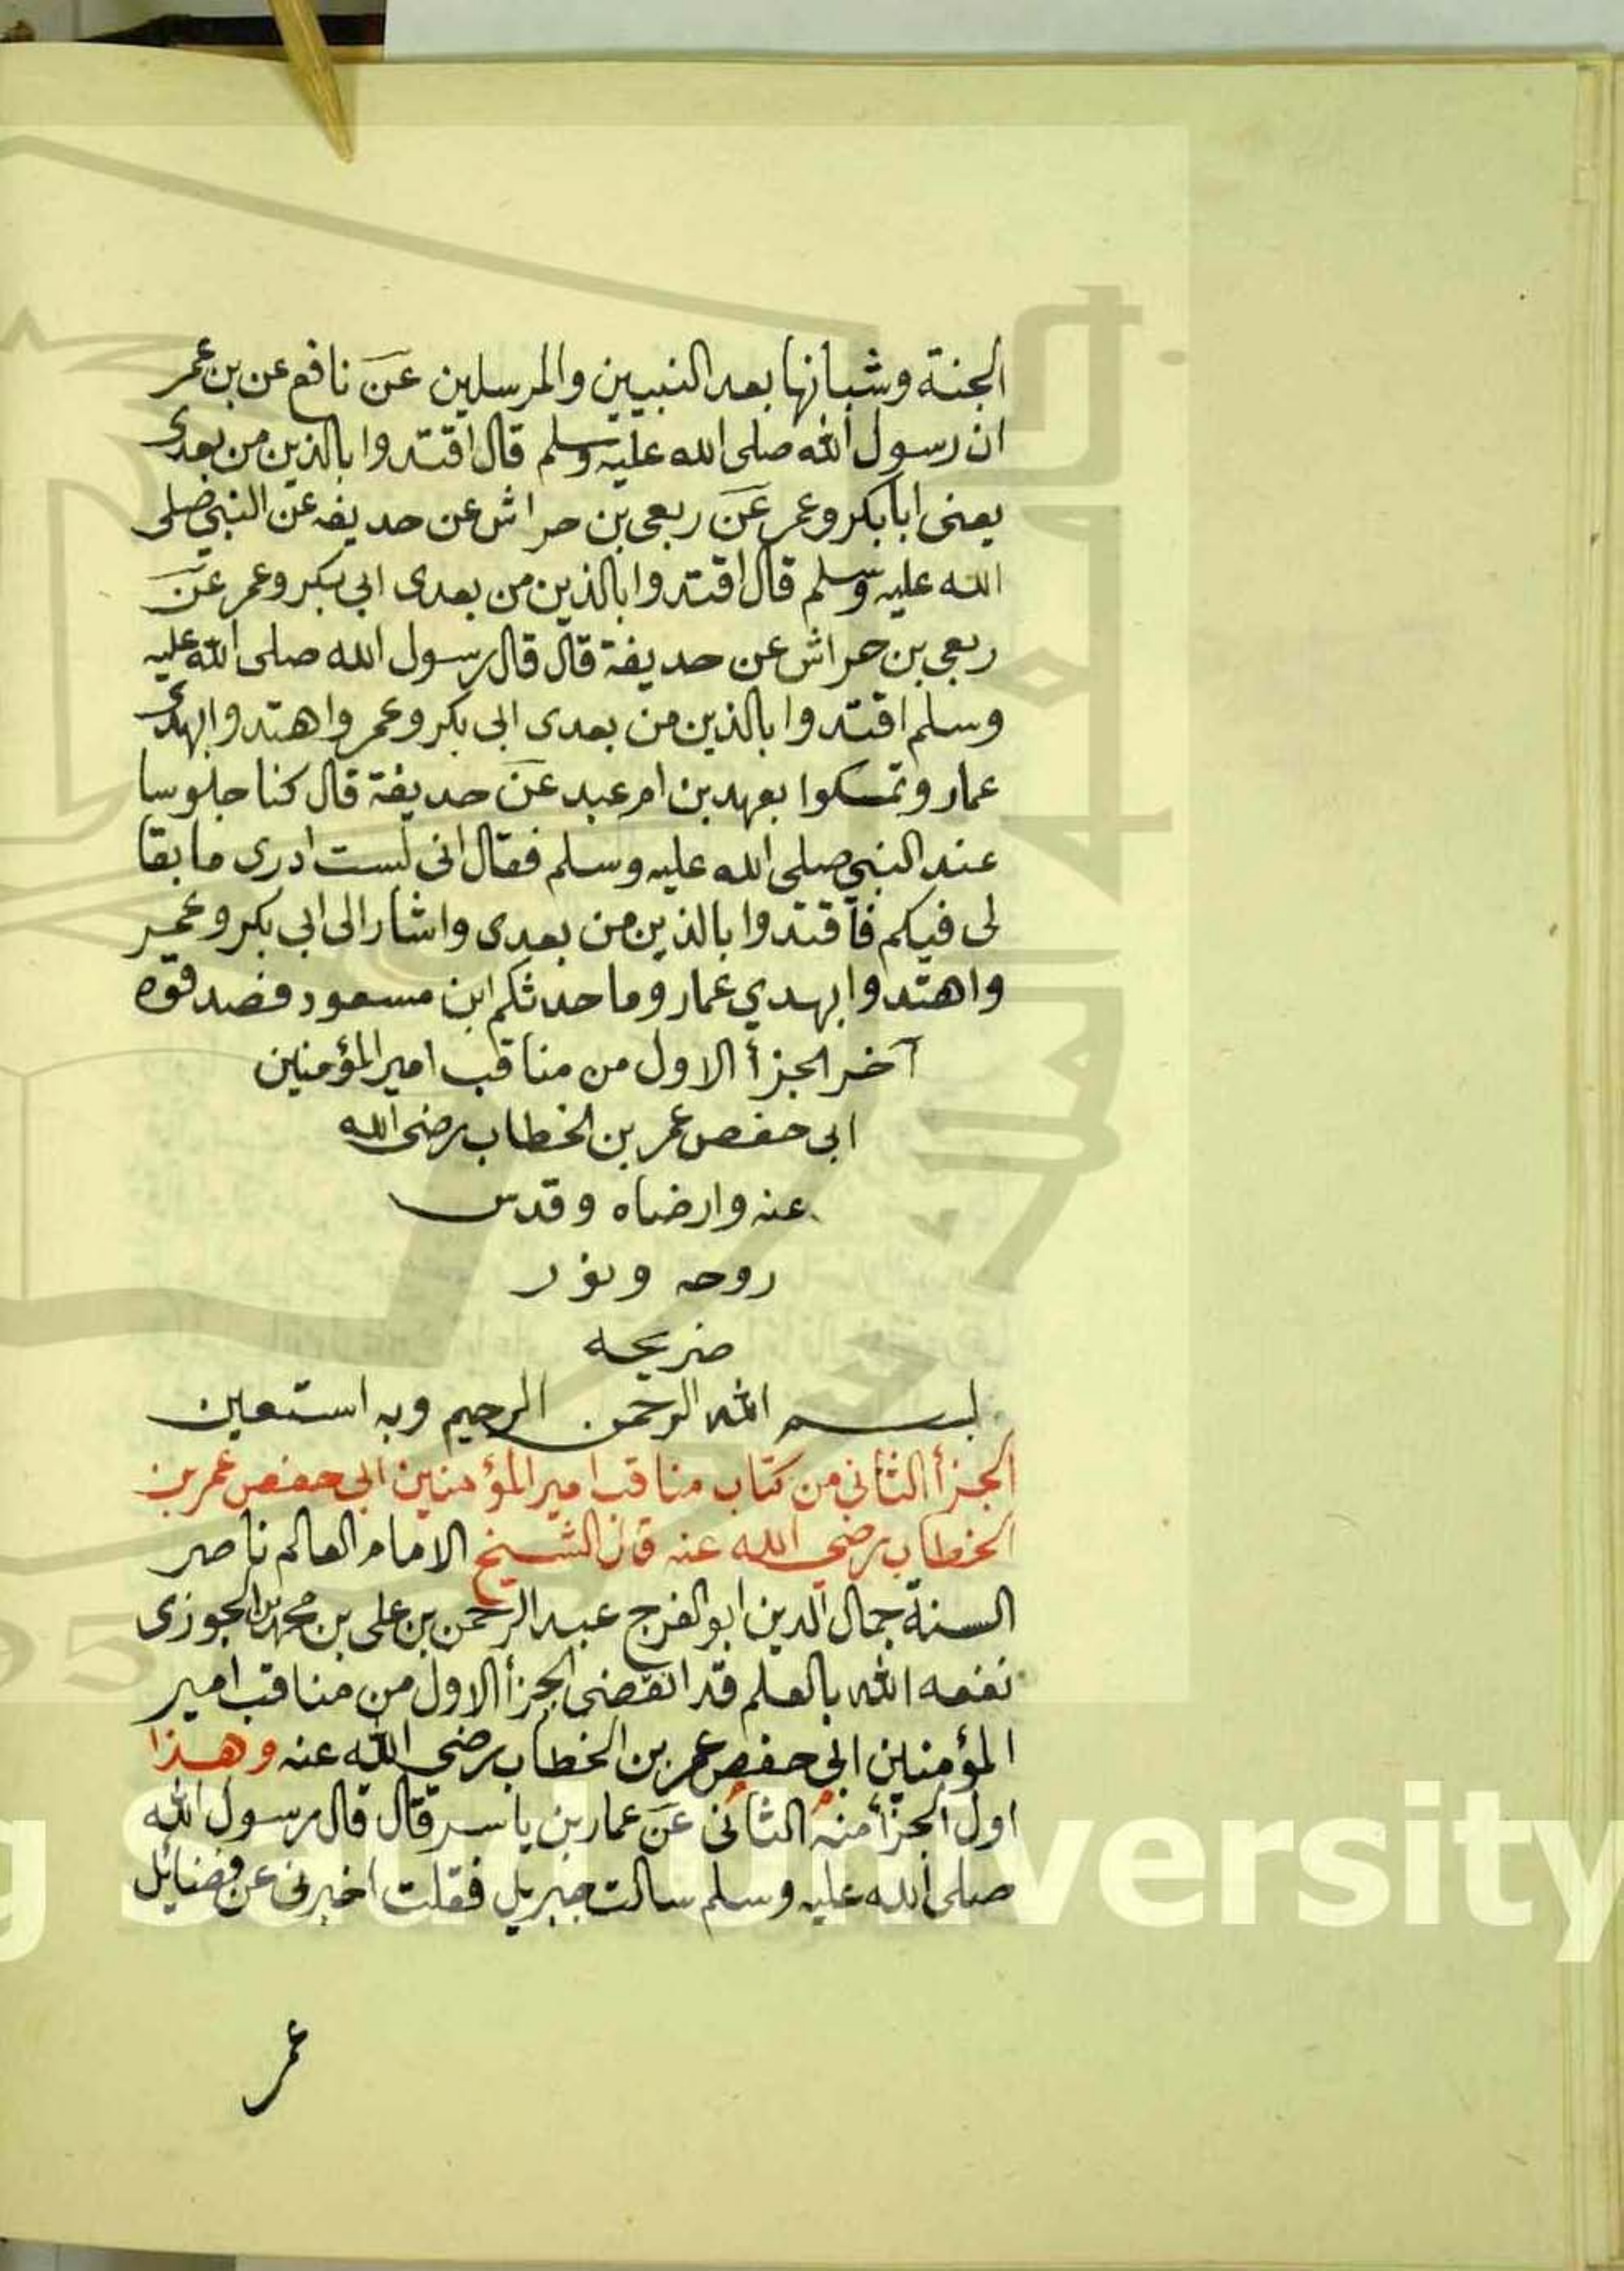 الجنة وشبانها بعد النبيين والمرسلين عن نافع عن بن عمر
ان رسول الله صلى الله عليه وسلم قال اقتدوا بالذين من بعدى
يعنى ابا بكر وعمر عن ربعى بن حراش عن حديفه عن النبي صلى
الله عليه وسلم قال اقتدوا بالذين من بعدى ابي بكر وعمر عن
ربعي بن حراش عن حديفة قال قال رسول الله صلى الله عليه
وسلم اقتدوا بالذين من بعدى ابي بكر وعمر واهتدوا بهدى
عمار وتمسكوا بعهد بن ام عبد عن حديفة قال كنا جلوسا
عند النبي صلى الله عليه وسلم فقال انى لست ادرى ما بقا
لى فيكم فاقتدوا بالذين من بعدى واشار الى ابي بكر وعمر
واهتدوا بهدي عمار وما حدثكم ابن مسعود فصدقوه
آخر الجزأ الاول من مناقب امير المؤمنين
ابى حفص عمر بن الخطاب رضى الله
عنه وارضاه وقدس
روحه ونور
ضريحه
بسم الله الرحمن الرحيم وبه استعين
الجزأ الثاني من كتاب مناقب امير المؤمنين ابي حفص عمر بن
الخطاب رضي الله عنه قال الشيخ الامام العالم ناصر
السنة جمال الدين ابو الفرج عبد الرحمن بن على بن محمد بن الجوزى
نفعه الله بالعلم قد انقضى الجزأ الاول من مناقب امير
المؤمنين ابي حفص عمر بن الخطاب رضي الله عنه وهذا
اول الجزأ منه الثانى عن عمار بن ياسر قال قال رسول الله
صلى الله عليه وسلم سالت جبريل فقلت اخبرنى عن فضايل
عمر
g Saud University